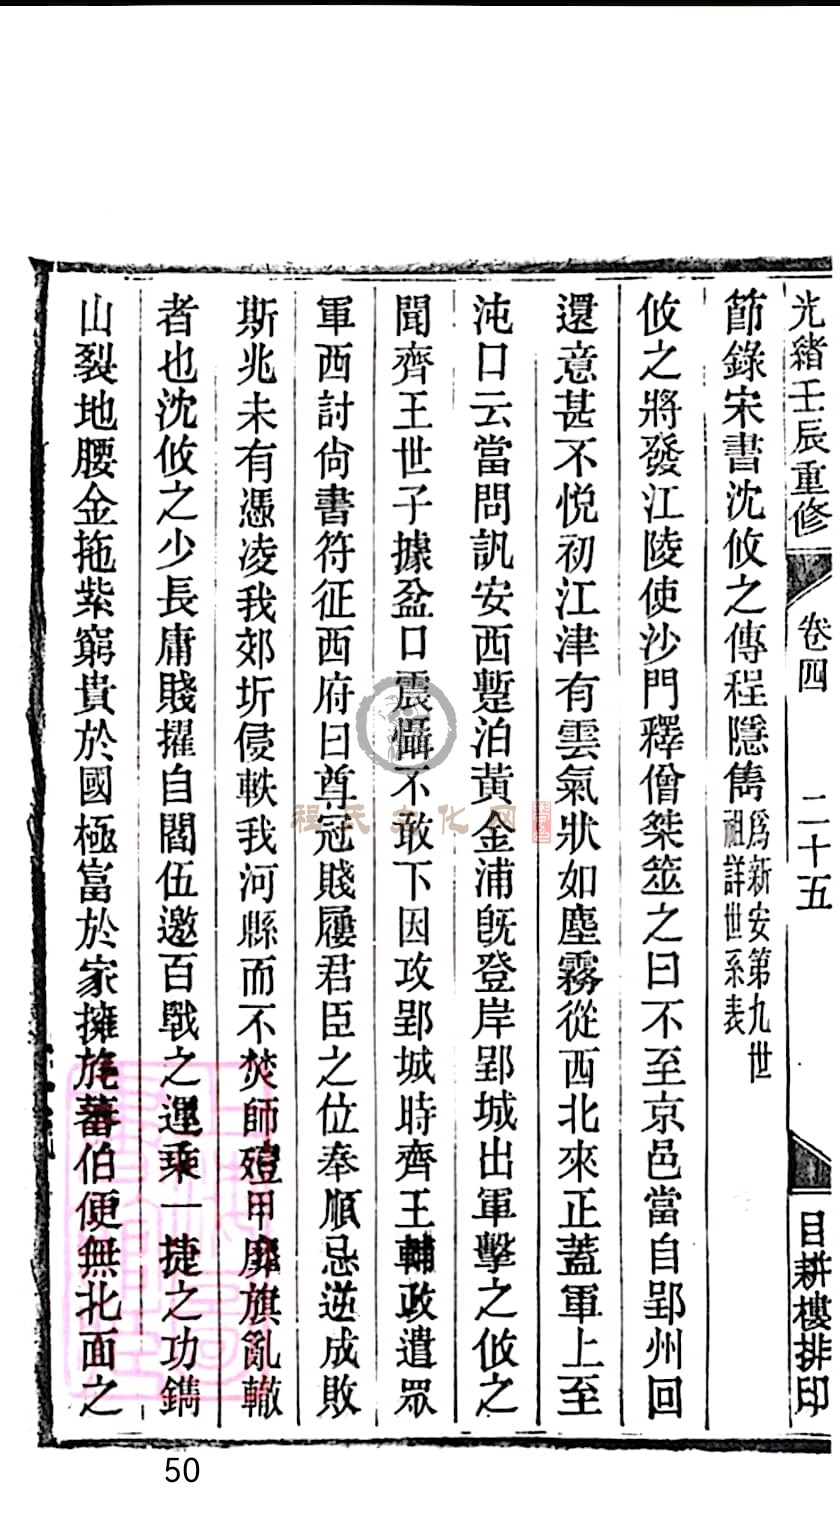 光緒壬辰重修 卷四 二十五 目耕樓排印
節錄宋書沈攸之傳程隱雋爲新安第九世祖詳世系表
攸之將發江陵使沙門釋僧桀筮之曰不至京邑當自郢州回
還意甚不悅初江津有雲氣狀如塵霧從西北來正蓋軍上至
沌口云當問訊安西蹔泊黃金浦旣登岸郢城出軍擊之攸之
聞齊王世子據盆口震懾不敢下因攻郢城時齊王輔政遣眾
軍西討尙書符征西府曰尊冠賤屨君臣之位奉順忌逆成敗
斯兆未有憑凌我郊圻侵軼我河縣而不焚師殪甲靡旗亂轍
者也沈攸之少長庸賤擢自閻伍邀百戰之運乘一捷之功鐫
山裂地腰金拖紫窮貴於國極富於家擁旄蕃伯便無北面之
程氏文化网
50